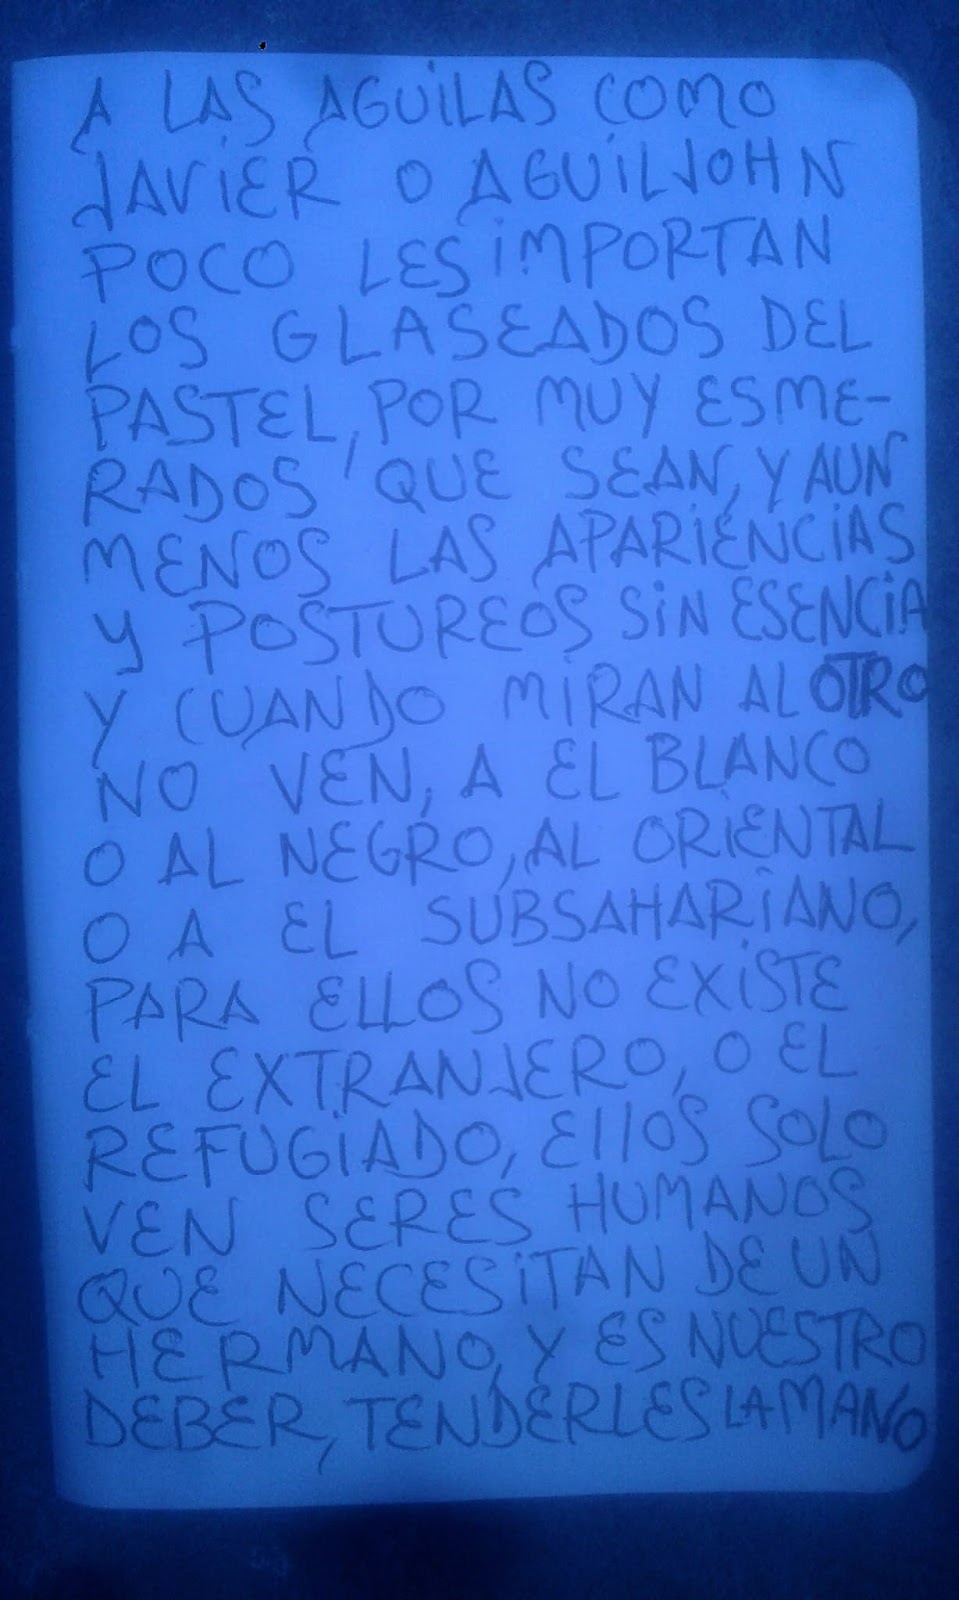 A LAS AGUILAS COMO
JAVIER O AGUILJOHN
POCO LES IMPORTAN
LOS GLASEADOS DEL
PASTEL, POR MUY ESME-
RADOS QUE SEAN, Y AUN
MENOS LAS APARIENCIAS
Y POSTUREOS SIN ESENCIA
Y CUANDO MIRAN AL OTRO
NO VEN, A EL BLANCO
O AL NEGRO, AL ORIENTAL
O A EL SUBSAHARIANO,
PARA ELLOS NO EXISTE
EL EXTRANJERO, O EL
REFUGIADO, EllOS SOLO
VEN SERES HUMANOS
QUE NECESITAN DE UN
HERMANO, Y ES NUESTRO
DEBER, TENDERLES LA MANO